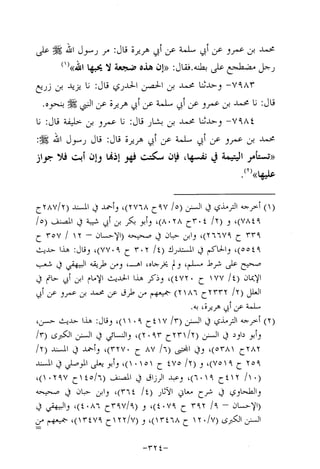 محمد بن عمرو عن أبي سلمة عن أبي هريرة قال: مر رسول الله ﷺ على
رجل مضطجع على بطنه.فقال: «إن هذه ضجعة لا يحبها الله»(١)
٧٩٨٣- وحدثنا محمد بن الحصن الحدري قال: نا يزيد بن زريع
قال: نا محمد بن عمرو عن أبي سلمة عن أبي هريرة عن النبي ﷺ بنحوه.
٧٩٨٤- وحدثنا محمد بن بشار قال: نا عمرو بن خليفة قال: نا
محمد بن عمرو عن أبي سلمة عن أبي هريرة قال: قال رسول الله ﷺ:
«تستأمر اليتيمة في نفسها، فإن سكتت فهو إذنها وإن أبت فلا جواز
عليها»(٢).
(١) أخرجه الترمذي في السنن (٥/ ٩٧ح ٢٧٦٨)، وأحمد في المسند (٢/٢٨٧ح
٧٨٤٩)، و (٢/ ٣٠٤ح ٨٠٢٨)، وأبو بكر بن أبي شيبة في المصنف (٥/
٣٣٩ ح ٢٦٦٧٩)، وابن حبان في صحيحه (الإحسان - ١٢ / ٣٥٧ ح
٥٥٤٩)، والحاكم في المستدرك (٤/ ٣٠٢ ح ٧٧٠٩)، وقال: هذا حديث
صحيح على شرط مسلم، ولم يخرجاه، اهـ، ومن طريقه البيهقي في شعب
الإيمان (٤/ ١٧٧ ح ٤٧٢٠)، وذكر هذا الحديث الإمام ابن أبي حاتم في
العلل (٢/ ٢٣٣ح ٢١٨٦) جميعهم من طرق عن محمد بن عمرو عن أبي
سلمة عن أبي هريرة، به.
(٢) أخرجه الترمذي في السنن (٣/ ٤١٧ح ١١٠٩)، وقال: هذا حديث حسن،
وأبو داود في السنن (٢/٢٣١ح ٢٠٩٣)، والنسائي في السنن الكبرى (٣/
٢٨٢ح ٥٣٨١)، وفي المجتبى (٦/ ٨٧ ح ٣٢٧٠)، وأحمد في المسند (٢/
٢٥٩ ح ٧٥١٩)، و (٢/ ٤٧٥ ح ١٠١٥١)، وأبو يعلى الموصلي في المسند
(١٠/ ٤١٢ح ٦٠١٩)، وعبد الرزاق في المصنف (٦/١٤٥ح ١٠٢٩٧)،
والطحاوي في شرح معاني الآثار (٤/ ٣٦٤)، وابن حبان في صحيحه
(الإحسان - ٩/ ٣٩٢ ح ٤٠٧٩)، و (٩/٣٩٧ح ٤٠٨٦)، والبيهقي في
السنن الكبرى (٧/ ١٢٠ح ١٣٤٦٨)، و (٧/ ١٢٢ح ١٣٤٧٩)، جميعهم من
-٣٢٤-